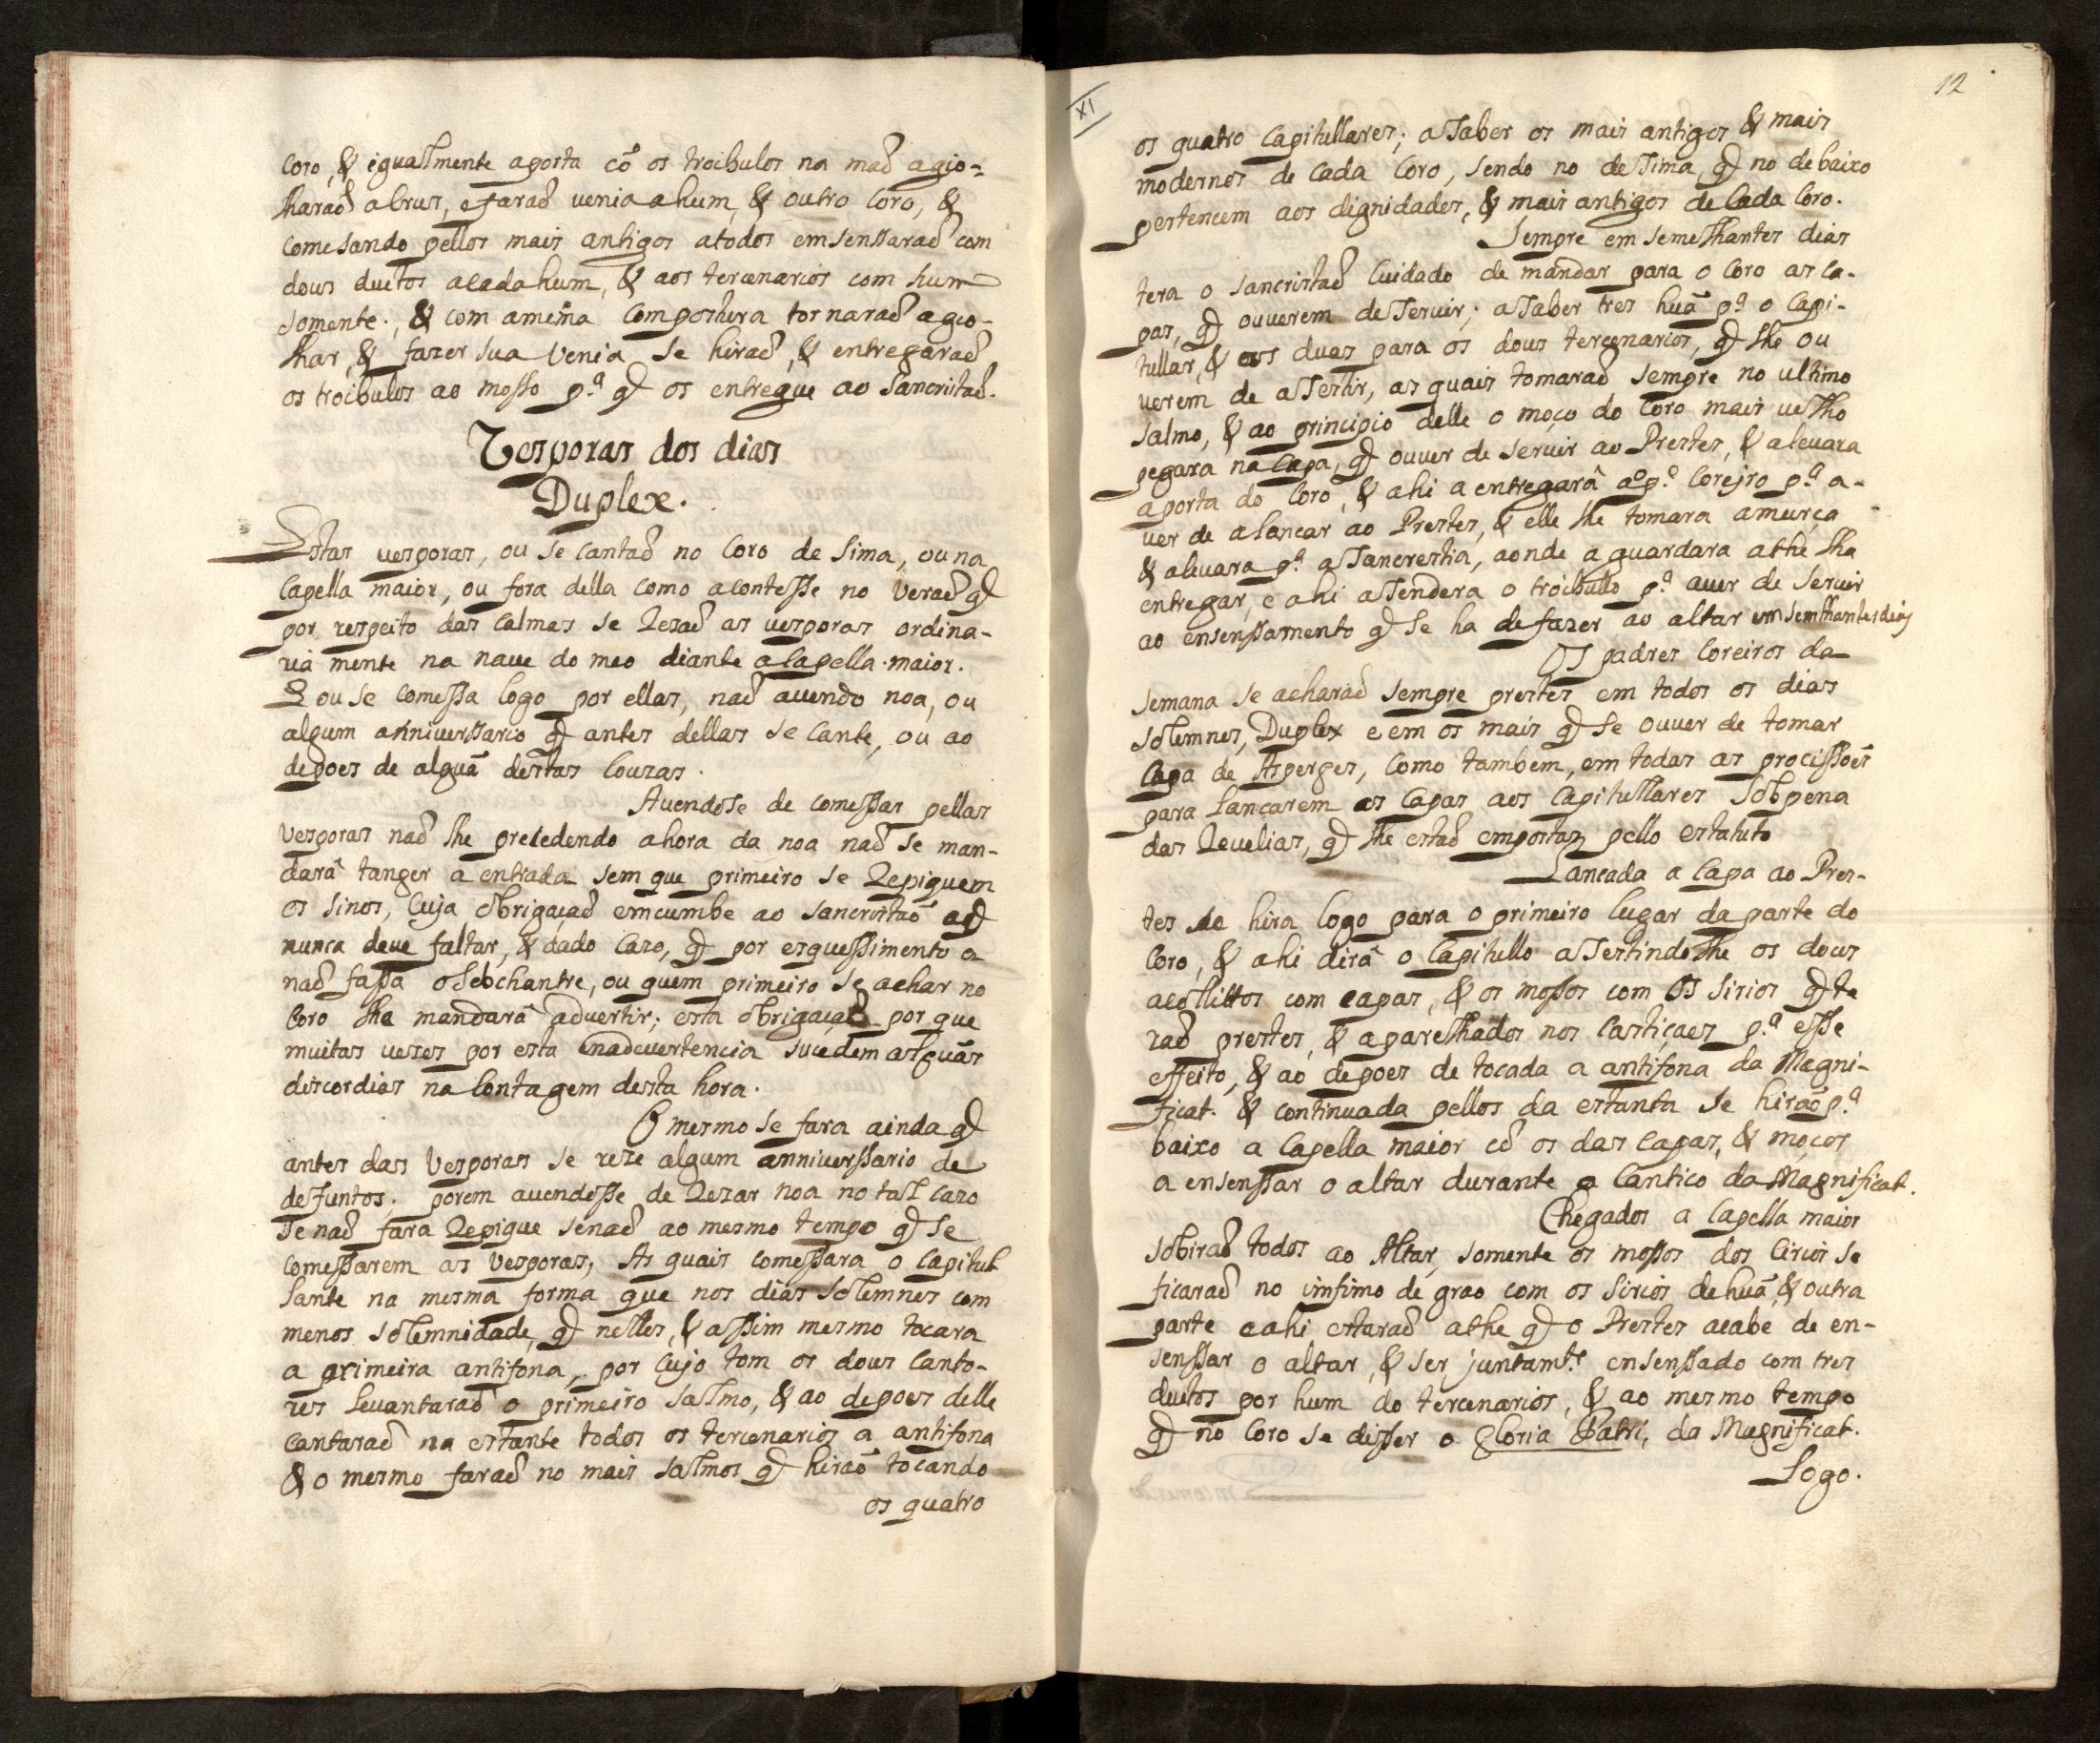 Coro, & igualmente aporta cõ os troibulos na maõ agio=
lharaõ abrus, e faraõ uenia ahum, & outro Coro, &
Comesando pellos mais antigos atodos emsenssaraõ com
dous ductos acadahum, & aos tercenarios com hum
somente., & com amesma Compostura tornaraõ agio-
lhar, & fazer sua Venia se hiraõ, & entregaraõ
os troibulos ao mosso p.ª q̃ os entregue ao Sancristaõ.
Vesporas dos dias
Duplex.
Estas uesporas, ou se cantaõ no Coro de Sima, ou na
Capella maior, ou fora della como acontesse no Veraõ q̃
por respeito das Calmas se Rezaõ as uesporas ordina-
ria mente na naue do meo diante a Capella maior.
E ou se comessa logo por ellas, naõ auendo noa, ou
algum anniuerssario q̃ antes dellas se Cante, ou ao
depoes de alguã destas Couzas.
Auendose de comessar pellas
Vesporas naõ lhe precedendo ahora da noa naõ se man-
darâ tanger a entrada sem que primeiro se Repiquem
os sinos, Cuja obrigaçaõ emcumbe ao sancristaõ aq̃
nunca deue faltar, & dado Cazo, q̃ por esquessimento o
naõ fassa o Sobchantre, ou quem primeiro se achar no
Coro lhe mandarâ aduertir; esta obrigaçaõ por que
muitas uezes por esta Enaduertencia sucedem alguãs
discordias na Contagem desta hora.
O mesmo se fara ainda q̃
antes das Vesporas se reze algum anniuerssario de
defuntos; porem auendosse de Rezar noa no tal cazo
se naõ fara Repique senaõ ao mesmo tempo q̃ se
comessarem as Vesporas, As quais comessara o Capitul
lante na mesma forma que nos dias solemnes com
menos solemnidade, q̃ nelles, & assim mesmo tocara
a primeira antifona, por Cujo tom os dous Canto-
res leuantaraõ o primeiro salmo, & ao depoes delle
cantaraõ na estante todos os tercenarios a antifona
& o mesmo faraõ no mais salmos q̃ hiraõ tocando
os quatro
XI
12
os quatro Capitullares; a saber os mais antigos & mais
modernos de Cada Coro, sendo no de sima, q̃ no debaixo
pertencem aos dignidades, & mais antigos de Cada Coro.
Sempre em semelhantes dias
tera o sancristaõ Cuidado de mandar para o Coro as Ca-
pas, q̃ ouuerem de seruir; a saber tres huã p.ª o Capi-
tullar, & as duas para os dous tercenarios, q̃ lhe ou
uerem de assestir, as quais tomaraõ sempre no ultimo
salmo, & ao principio delle o moço do Coro mais uelho
pegara na Capa, q̃ ouuer de seruir ao Prestes, & aleuara
aporta do Coro, & ahi a entregarâ ao p.º Corejro p.ª a-
uer de alancar ao Prestes, & elle lhe tomara amurça
& aleuara p.ª a sancrestia, aonde aguardara athe lha
entregar, e ahi assendera o troibullo p.ª auer de seruir
ao ensenssamento q̃ se ha de fazer ao altar em semelhantes dias
Os padres Coreiros da
semana se acharaõ sempre prestes em todos os dias
solemnes, Duplex e em os mais q̃ se ouuer de tomar
Capa de Asperges, Como tambem, em todas as procissões
para lançarem as Capas aos Capitullares sobpena
das Reuelias, q̃ lhe estaõ empostas pello estatuto
Lancada a Capa ao Pres-
tes se hira logo para o primeiro lugar da parte do
Coro, & ahi dirâ o Capitullo assestindo lhe os dous
acollittos com capas, & os mossos com os sirios q̃ te
raõ prestes, & aparelhados nos Castiçaes p.ª esse
effeito, & ao depoes de tocada a antifona da Magni-
ficat. & continuada pellos da estanta se hiraõ p.ª
baixo a Capella maior cõ os das Capas, & moços
a ensenssar o altar durante o Cantico da Magnificat.
Chegados a Capella maior
sobiraõ todos ao Altar, somente os mossos dos Cirios se
ficaraõ no imfimo de grao com os sirios de huã, & outra
parte e ahi estaraõ athe q̃ o Prestes acabe de en-
senssar o altar, & ser juntam.te ensenssado com tres
ductos por hum do tercenarios, & ao mesmo tempo
q̃ no Coro se disser o Gloria Patri, da Magnificat.
Logo.